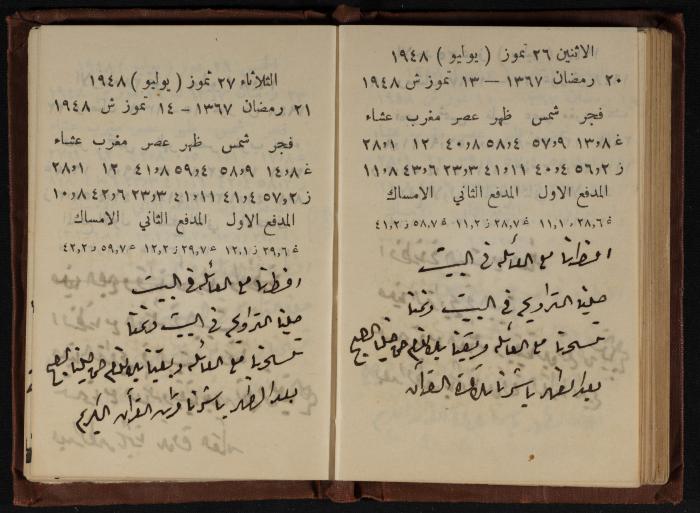 الاثنين ٢٦ تموز ( يوليو ) ١٩٤٨
٢٠ رمضان ١٣٦٧ — ١٣ تموز ش ١٩٤٨
فجر شمس ظهر عصر مغرب عشاء
غ ٨،١٣ ٩،٥٧ ٤،٥٨ ٨،٤٠ ١٢ ١،٢٨
ز ٢،٥٦ ٤،٤٠ ١١،٤١ ٣،٢٣ ٦،٤٣ ٨،١١
المدفع الاول المدفع الثاني الامساك
غ ٦،٢٨ ز ١،١١ غ ٧،٢٨ ز ٢،١١ غ ٧،٥٨ ز ٢،٤١
افطرنا مع العائلة في البيت
صلينا التراويح في البيت ونمنا
تسحرنا مع العائلة وبقينا بلا نوم حتى صلينا الصبح
بعد الظهر باشرنا بقراءة القرآن
الثلاثاء ٢٧ تموز ( يوليو ) ١٩٤٨
٢١ رمضان ١٣٦٧ - ١٤ تموز ش ١٩٤٨
فجر شمس ظهر عصر مغرب عشاء
غ ٨،١٤ ٩،٥٨ ٤،٥٩ ٨،٤١ ١٢ ١،٢٨
ز ٢،٥٧ ٤،٤١ ١١،٤١ ٣،٢٣ ٦،٤٢ ٨،١٠
المدفع الاول المدفع الثاني الامساك
غ ٦،٢٩ ز ١،١٢ غ ٧،٢٩ ز ٢،١٢ غ ٧،٥٩ ز ٢،٤٢
افطرنا مع العائلة في البيت
صلينا التراويح في البيت ونمنا
تسحرنا مع العائلة وبقينا بلا نوم حتى صلينا الصبح
بعد الظهر باشرنا القرآن الكريم